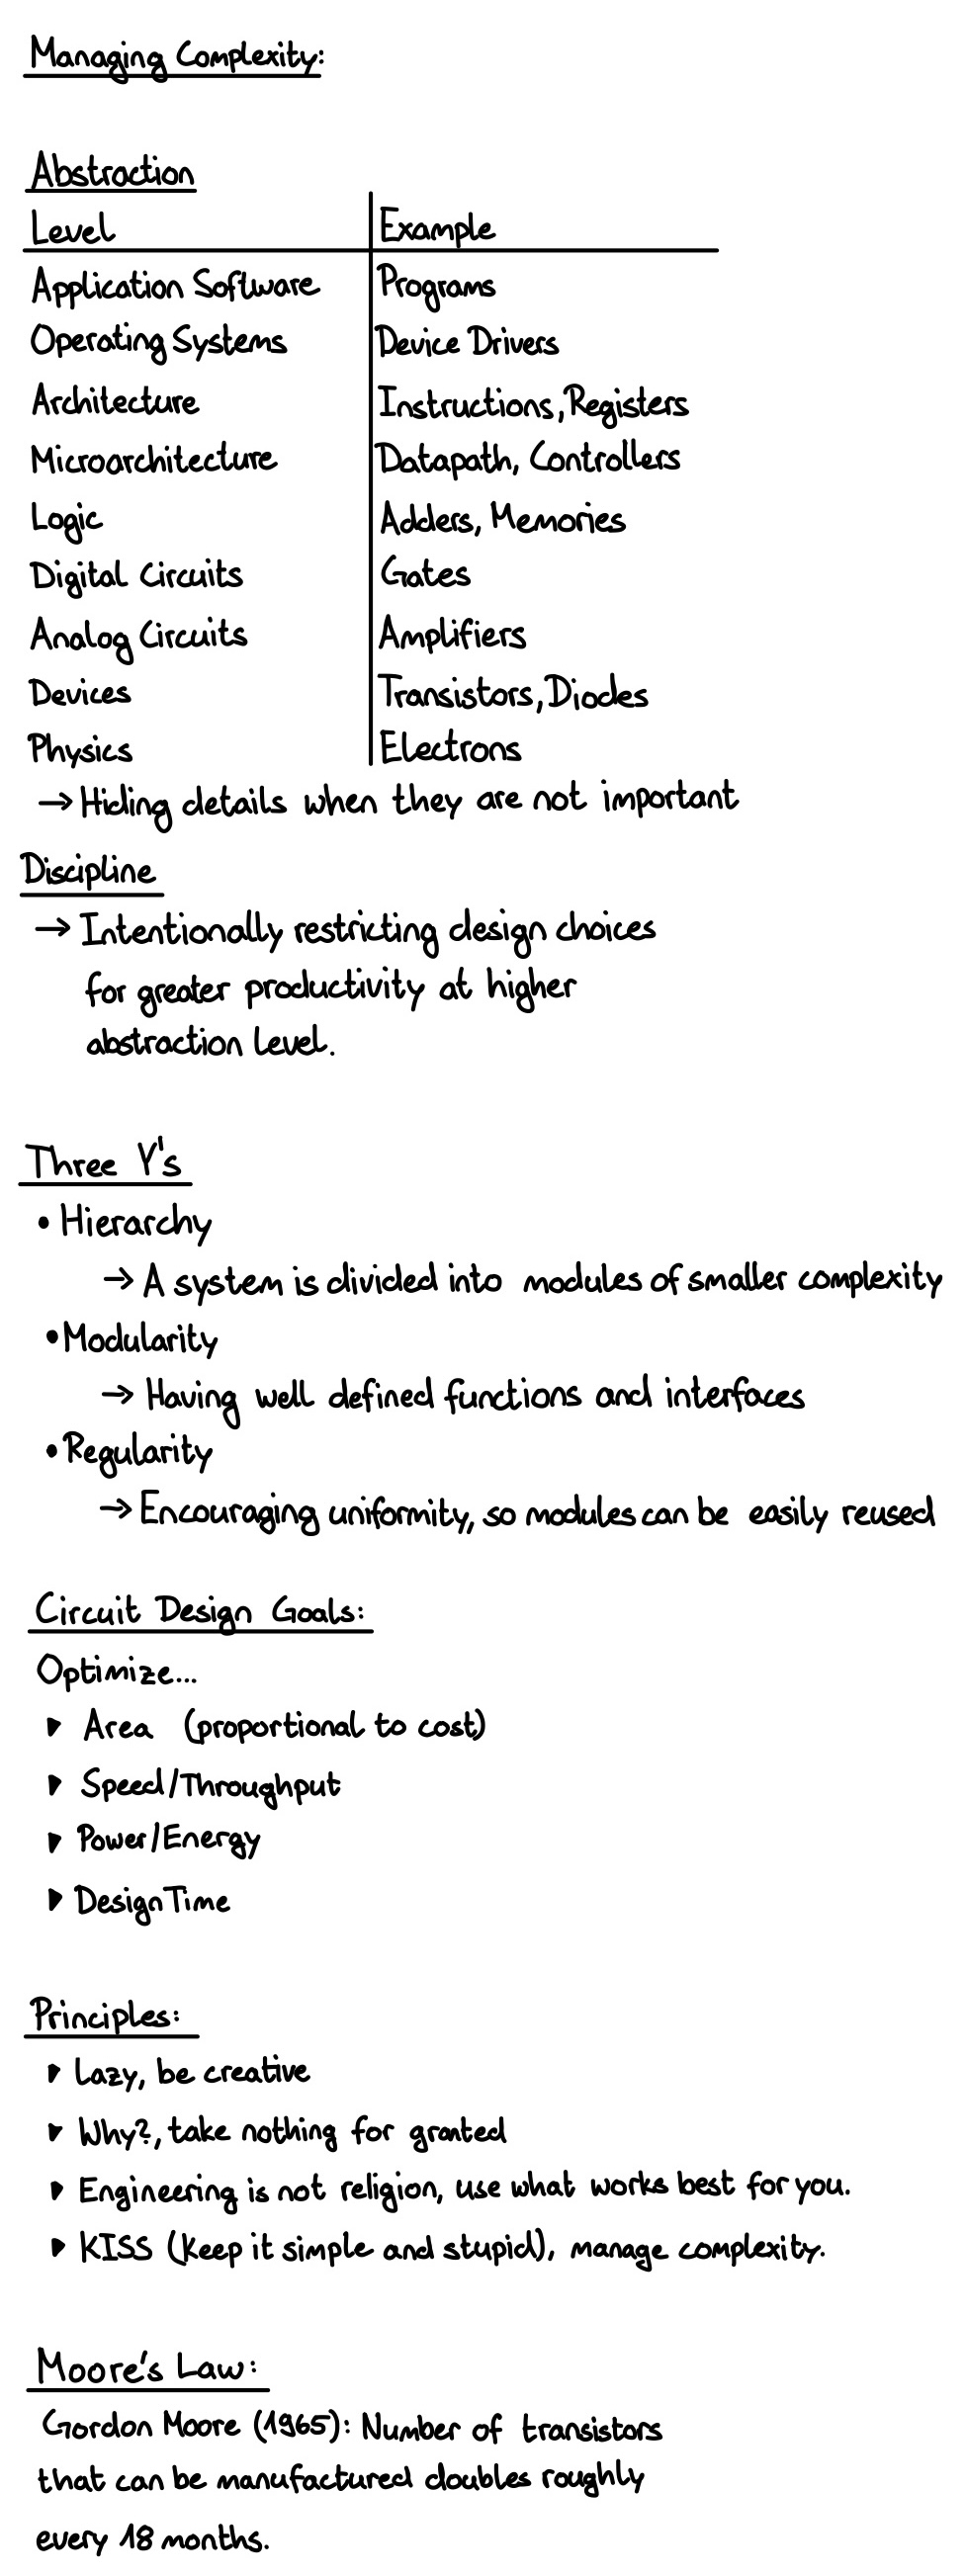 Managing Complexity:
Abstraction
Level Example
Application Software Programs
Operating Systems Device Drivers
Architecture Instructions, Registers
Microarchitecture Datapath, Controllers
Logic Adders, Memories
Digital Circuits Gates
Analog Circuits Amplifiers
Devices Transistors, Diodes
Physics Electrons
→ Hiding details when they are not important
Discipline
→ Intentionally restricting design choices
for greater productivity at higher
abstraction level.
Three Y's
• Hierarchy
→ A system is divided into modules of smaller complexity
• Modularity
→ Having well defined functions and interfaces
• Regularity
→ Encouraging uniformity, so modules can be easily reused
Circuit Design Goals:
Optimize...
▸ Area (proportional to cost)
▸ Speed/Throughput
▸ Power/Energy
▸ Design Time
Principles:
▸ Lazy, be creative
▸ Why?, take nothing for granted
▸ Engineering is not religion, use what works best for you.
▸ KISS (Keep it simple and stupid), manage complexity.
Moore's Law:
Gordon Moore (1965): Number of transistors
that can be manufactured doubles roughly
every 18 months.